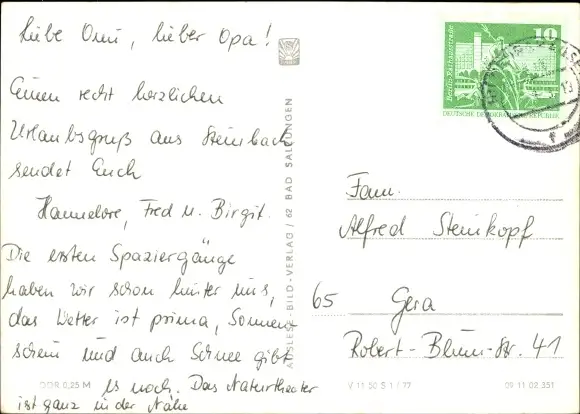 Liebe Omi, lieber Opa!
Einen recht herzlichen
Urlaubsgruß aus Steinbach
sendet Euch
Hannelore, Fred u. Birgit.
Die ersten Spaziergänge
haben wir schon hinter uns,
das Wetter ist prima, Sonnen-
schein und auch Schnee gibt
es noch. Das Naturtheater
ist ganz in der Nähe
DDR 0,25 M
AUSLESE-BILD-VERLAG / 62 BAD SALZUNGEN
10
Berlin-Rathausstraße
DEUTSCHE DEMOKRATISCHE REPUBLIK
Fam.
Alfred Steinkopf
65 Gera
Robert-Blum-Str. 41
V 11 50 S 1 / 77
09 11 02 351